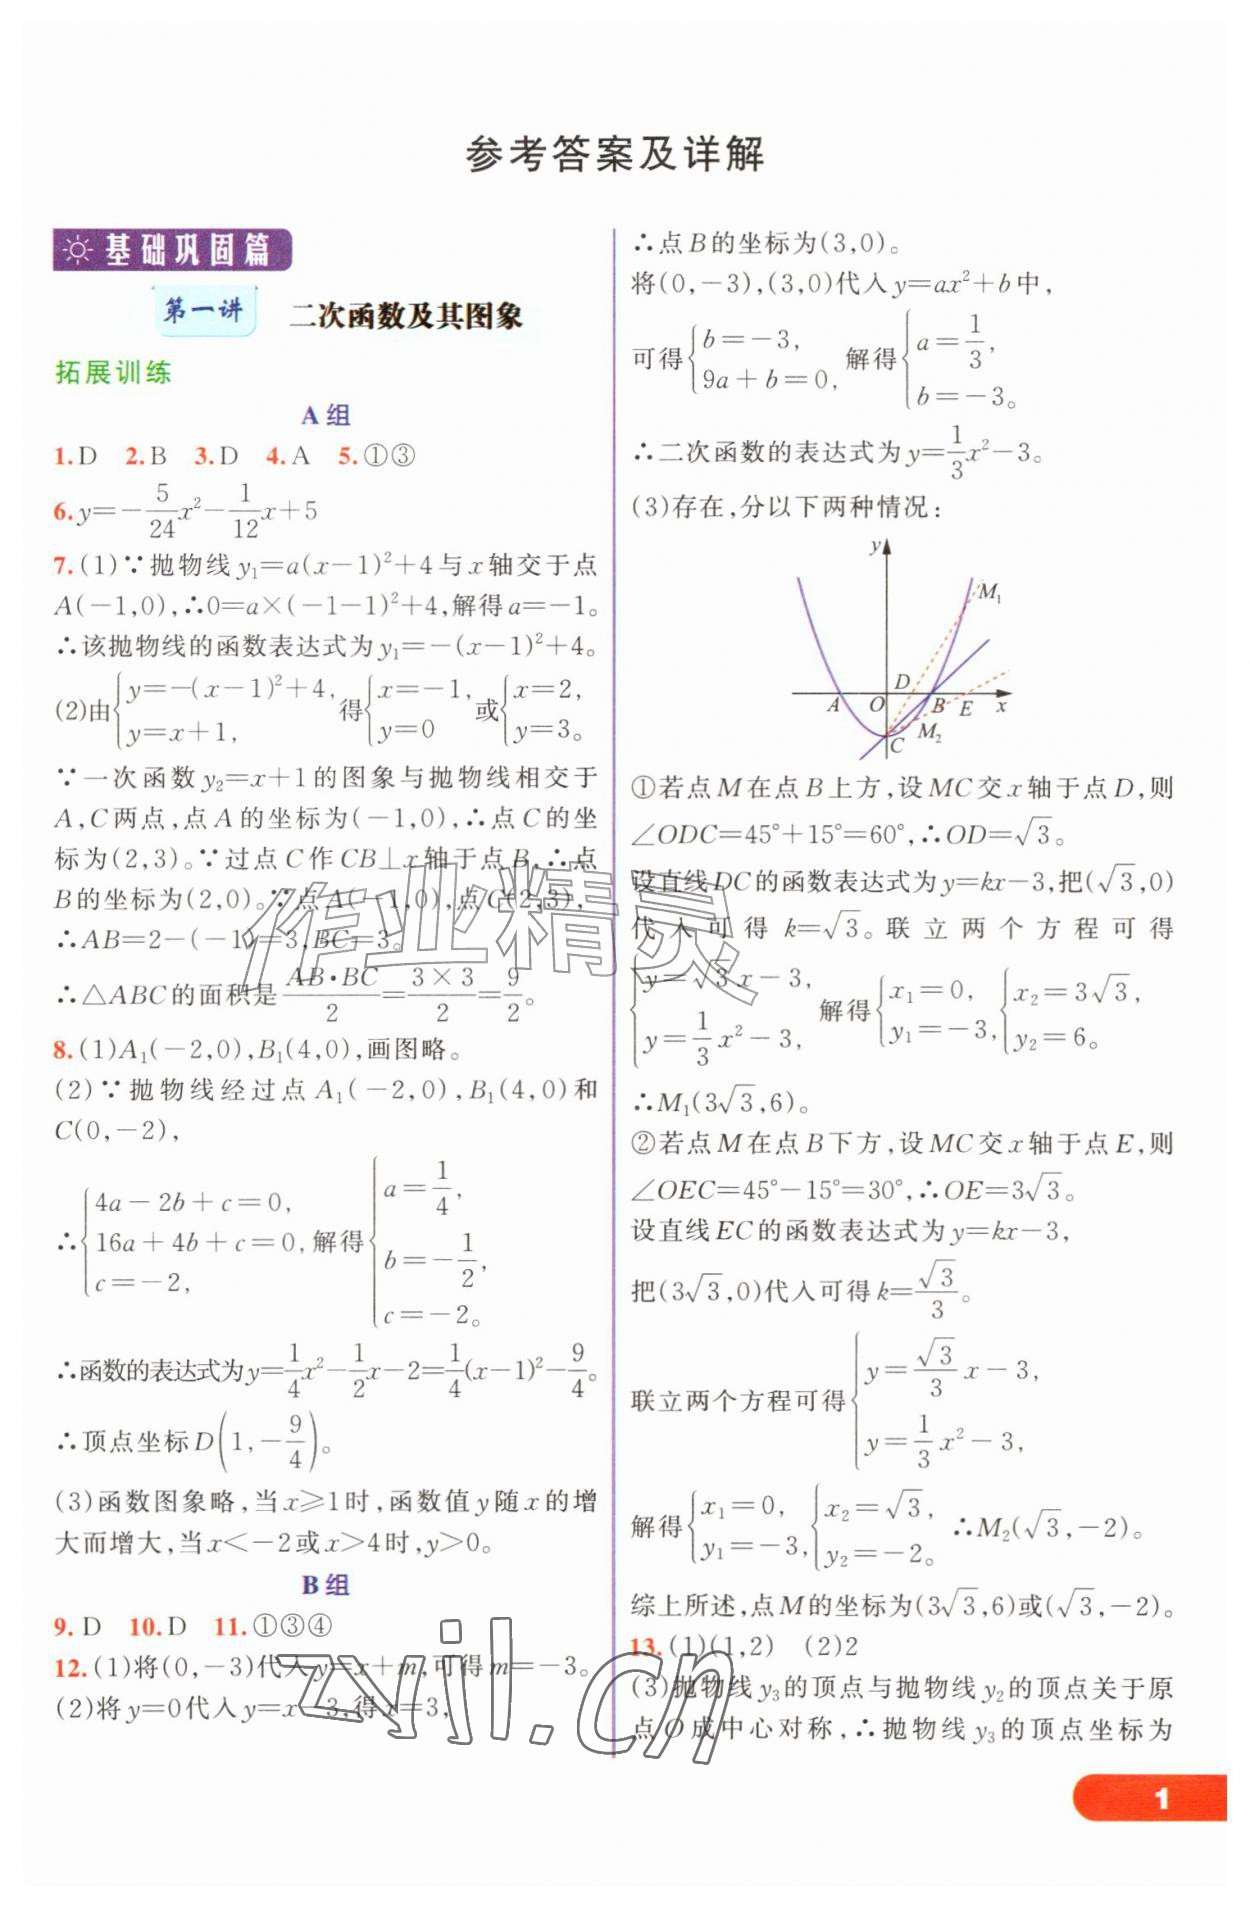 参考答案及详解
基础巩固篇
第一讲 二次函数及其图象
拓展训练
A组
1.D 2.B 3.D 4.A 5.①③
6.y=-\frac{5}{24}x²-\frac{1}{12}x+5
7.(1)∵抛物线y₁=a(x-1)²+4与x轴交于点
A(-1,0),∴0=a×(-1-1)²+4,解得a=-1。
∴该抛物线的函数表达式为y₁=-(x-1)²+4。
(2)由{y=-(x-1)²+4, y=x+1, 得{x=-1, y=0 或{x=2, y=3。
∵一次函数y₂=x+1的图象与抛物线相交于
A,C两点,点A的坐标为(-1,0),∴点C的坐
标为(2,3)。∵过点C作CB⊥x轴于点B,∴点
B的坐标为(2,0)。∵点A(-1,0),点C(2,3),
∴AB=2-(-1)=3,BC=3。
∴△ABC的面积是\frac{AB·BC}{2}=\frac{3×3}{2}=\frac{9}{2}。
8.(1)A₁(-2,0),B₁(4,0),画图略。
(2)∵抛物线经过点A₁(-2,0),B₁(4,0)和
C(0,-2),
∴{4a-2b+c=0, 16a+4b+c=0, c=-2, 解得{a=\frac{1}{4}, b=-\frac{1}{2}, c=-2。
∴函数的表达式为y=\frac{1}{4}x²-\frac{1}{2}x-2=\frac{1}{4}(x-1)²-\frac{9}{4}。
∴顶点坐标D(1,-\frac{9}{4})。
(3)函数图象略,当x≥1时,函数值y随x的增
大而增大,当x<-2或x>4时,y>0。
B组
9.D 10.D 11.①③④
12.(1)将(0,-3)代入y=x+m,可得m=-3。
(2)将y=0代入y=x-3,得x=3,
∴点B的坐标为(3,0)。
将(0,-3),(3,0)代入y=ax²+b中,
可得{b=-3, 9a+b=0, 解得{a=\frac{1}{3}, b=-3。
∴二次函数的表达式为y=\frac{1}{3}x²-3。
(3)存在,分以下两种情况:
y
M₁
D
A O B E x
C M₂
①若点M在点B上方,设MC交x轴于点D,则
∠ODC=45°+15°=60°,∴OD=√3。
设直线DC的函数表达式为y=kx-3,把(√3,0)
代入可得k=√3。联立两个方程可得
{y=√3x-3, y=\frac{1}{3}x²-3, 解得{x₁=0, y₁=-3, {x₂=3√3, y₂=6。
∴M₁(3√3,6)。
②若点M在点B下方,设MC交x轴于点E,则
∠OEC=45°-15°=30°,∴OE=3√3。
设直线EC的函数表达式为y=kx-3,
把(3√3,0)代入可得k=\frac{√3}{3}。
联立两个方程可得{y=\frac{√3}{3}x-3, y=\frac{1}{3}x²-3,
解得{x₁=0, y₁=-3, {x₂=√3, y₂=-2。 ∴M₂(√3,-2)。
综上所述,点M的坐标为(3√3,6)或(√3,-2)。
13.(1)(1,2) (2)2
(3)抛物线y₃的顶点与抛物线y₂的顶点关于原
点O成中心对称,∴抛物线y₃的顶点坐标为
1
作业精灵
zyjl.cn